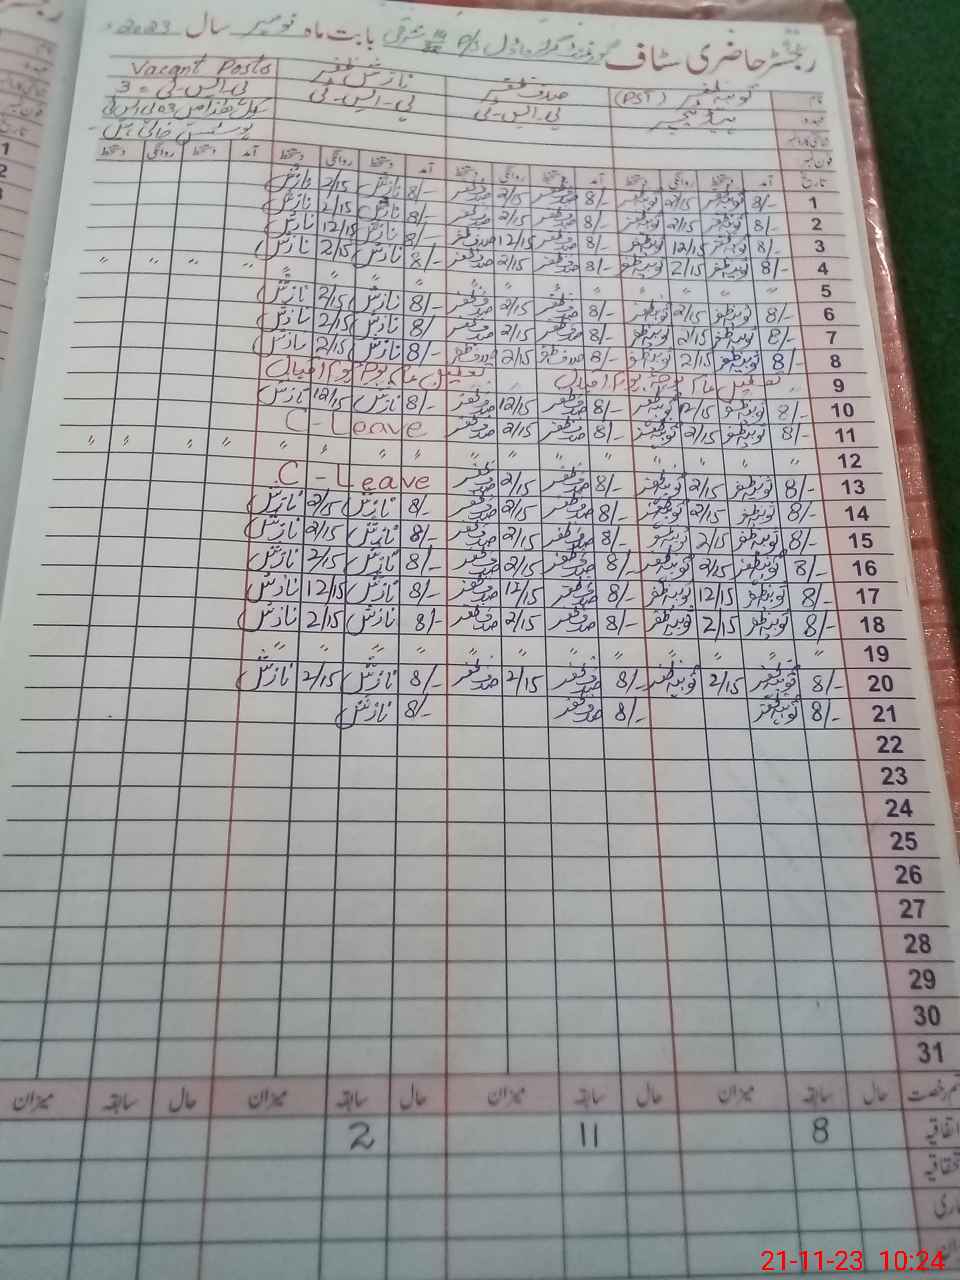 رجسٹر حاضری سٹاف گورنمنٹ گرلز ماڈل P/S بابت ماہ نومبر سال 2023ء
نام ثوبیہ ظفر (PST) صدف ظفر نازش ظفر Vacant Posts
عہدہ ہیڈ ٹیچر پی۔ایس۔ٹی پی۔ایس۔ٹی پی۔ایس۔ٹی = 3
فون نمبر
تاریخ آمد دستخط روانگی دستخط آمد دستخط روانگی دستخط آمد دستخط روانگی دستخط آمد دستخط روانگی دستخط
1 8/- ثوبیہ ظفر 2/15 ثوبیہ ظفر 8/- صدف ظفر 2/15 صدف ظفر 8/- نازش 2/15 نازش
2 8/- ثوبیہ ظفر 2/15 ثوبیہ ظفر 8/- صدف ظفر 2/15 صدف ظفر 8/- نازش 2/15 نازش
3 8/- ثوبیہ ظفر 12/15 ثوبیہ ظفر 8/- صدف ظفر 12/15 صدف ظفر 8/- نازش 12/15 نازش
4 8/- ثوبیہ ظفر 2/15 ثوبیہ ظفر 8/- صدف ظفر 2/15 صدف ظفر 8/- نازش 2/15 نازش
5 " " " " " " " " " " " " " " " "
6 8/- ثوبیہ ظفر 2/15 ثوبیہ ظفر 8/- صدف ظفر 2/15 صدف ظفر 8/- نازش 2/15 نازش
7 8/- ثوبیہ ظفر 2/15 ثوبیہ ظفر 8/- صدف ظفر 2/15 صدف ظفر 8/- نازش 2/15 نازش
8 8/- ثوبیہ ظفر 2/15 ثوبیہ ظفر 8/- صدف ظفر 2/15 صدف ظفر 8/- نازش 2/15 نازش
9 تعطیل عام بوجہ یوم اقبال تعطیل عام بوجہ یوم اقبال
10 8/- ثوبیہ ظفر 12/15 ثوبیہ ظفر 8/- صدف ظفر 12/15 صدف ظفر 8/- نازش 12/15 نازش
11 8/- ثوبیہ ظفر 2/15 ثوبیہ ظفر 8/- صدف ظفر 2/15 صدف ظفر C-Leave
12 " " " " " " " " " " " " " " " "
13 8/- ثوبیہ ظفر 2/15 ثوبیہ ظفر 8/- صدف ظفر 2/15 صدف ظفر C-Leave
14 8/- ثوبیہ ظفر 2/15 ثوبیہ ظفر 8/- صدف ظفر 2/15 صدف ظفر 8/- نازش 2/15 نازش
15 8/- ثوبیہ ظفر 2/15 ثوبیہ ظفر 8/- صدف ظفر 2/15 صدف ظفر 8/- نازش 2/15 نازش
16 8/- ثوبیہ ظفر 2/15 ثوبیہ ظفر 8/- صدف ظفر 2/15 صدف ظفر 8/- نازش 2/15 نازش
17 8/- ثوبیہ ظفر 12/15 ثوبیہ ظفر 8/- صدف ظفر 12/15 صدف ظفر 8/- نازش 12/15 نازش
18 8/- ثوبیہ ظفر 2/15 ثوبیہ ظفر 8/- صدف ظفر 2/15 صدف ظفر 8/- نازش 2/15 نازش
19 " " " " " " " " " " " "
20 8/- ثوبیہ ظفر 2/15 ثوبیہ ظفر 8/- صدف ظفر 2/15 صدف ظفر 8/- نازش 2/15 نازش
21 8/- ثوبیہ ظفر 8/- صدف ظفر 8/- نازش
22
23
24
25
26
27
28
29
30
31
رخصت حال سابقہ میزان حال سابقہ میزان حال سابقہ میزان حال سابقہ میزان
اتفاقیہ 8 11 2
21-11-23 10:24